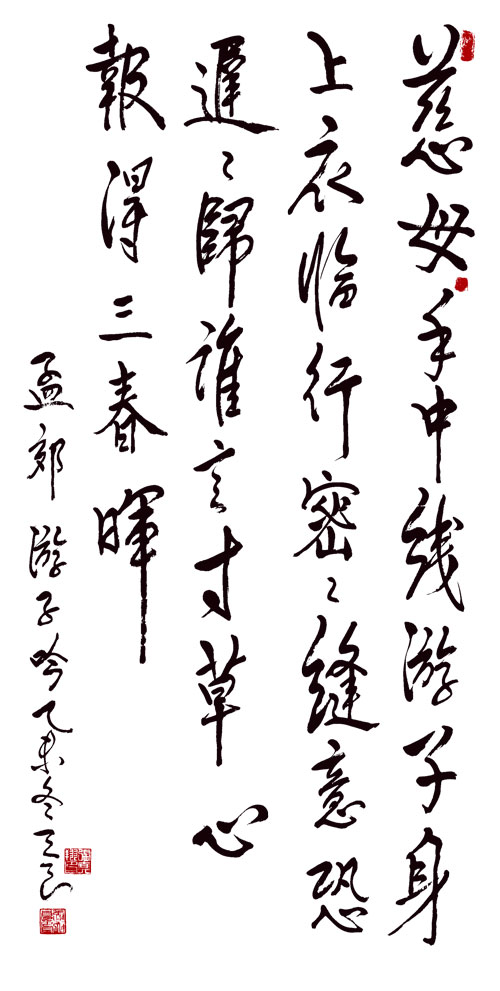 慈母手中线游子身
上衣临行密〻缝意恐
遲〻歸谁言寸草心
報得三春暉
孟郊游子吟乙未冬